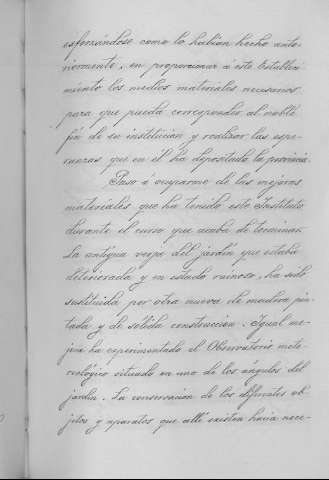 esforzándose como lo habían hecho ante-
riormente, en proporcionar á este Estableci-
miento los medios materiales necesarios
para que pueda corresponder al noble
fin de su institución y realizar las espe-
ranzas que en él ha depositado la provincia.
Paso á ocuparme de las mejoras
materiales que ha tenido este Instituto
durante el curso que acaba de terminar.
La antigua verja del jardín que estaba
deteriorada y en estado ruinoso, ha sido
sustituida por otra nueva de madera pin-
tada y de sólida construcción. Igual me-
jora ha experimentado el Observatorio mete-
orológico situado en uno de los ángulos del
jardín. La conservación de los diferentes ob-
jetos y aparatos que allí existen hacía nece-